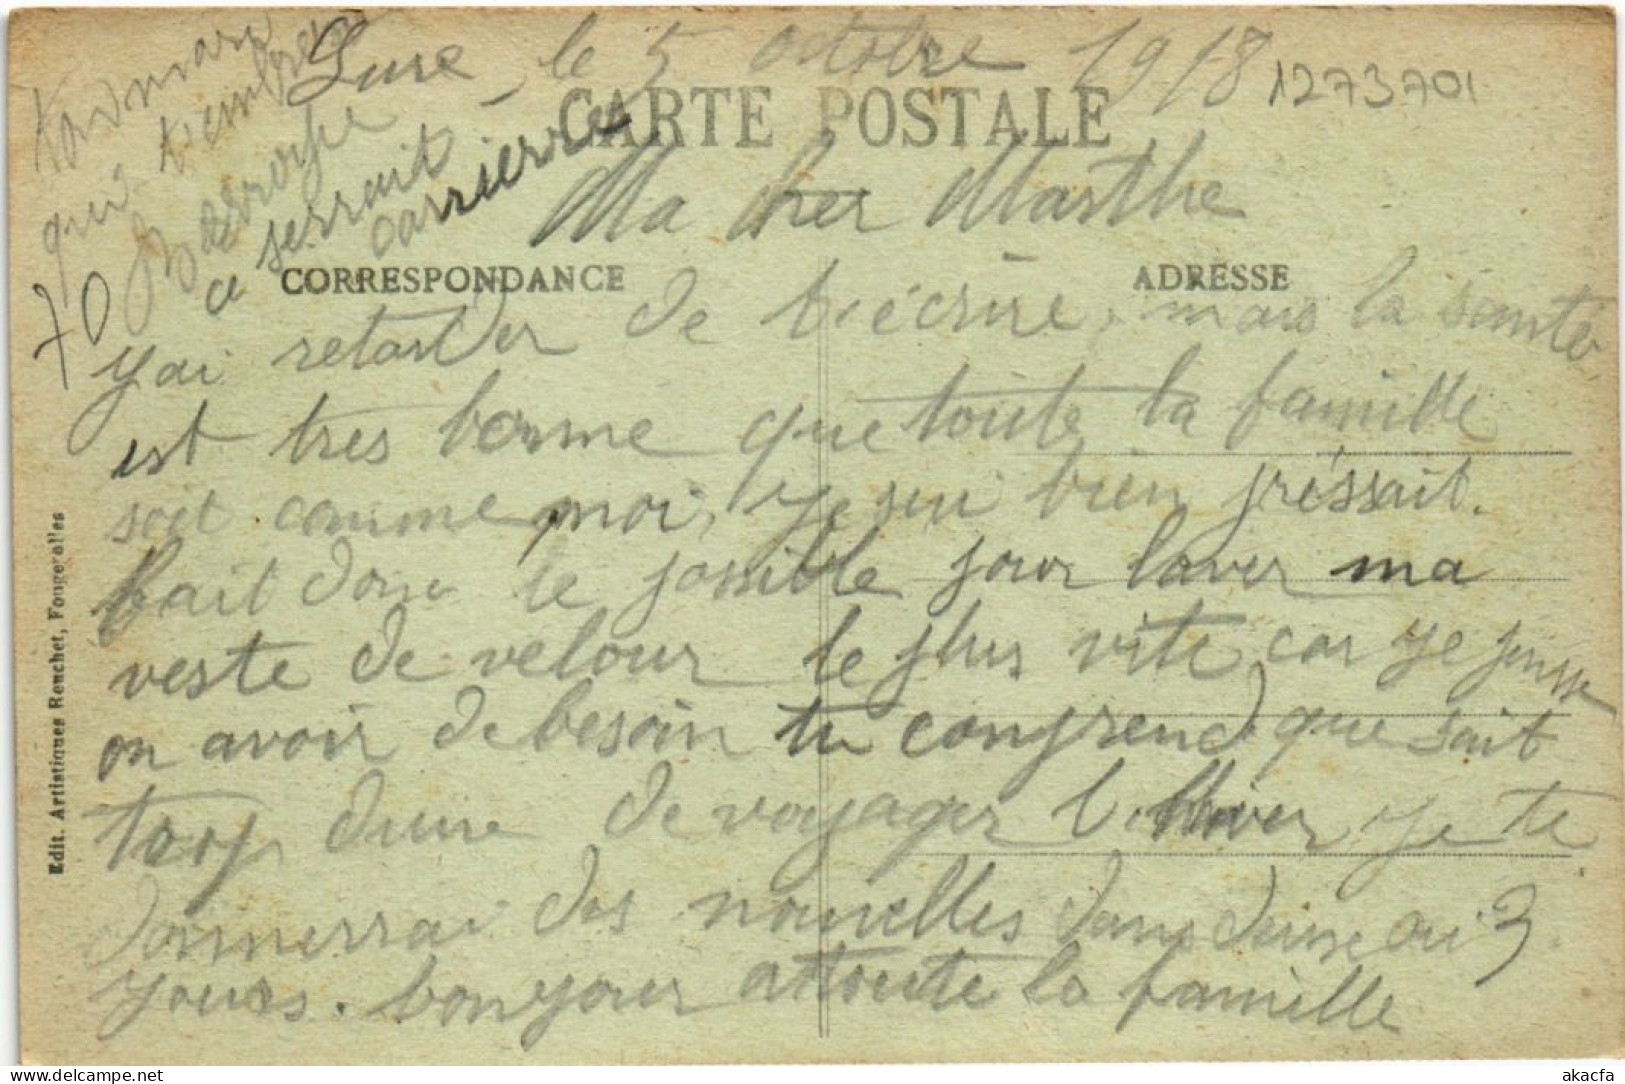 Lure, le 5 octobre 1918
1273701
CARTE POSTALE
Ma cher Marthe
CORRESPONDANCE
ADRESSE
qui
ce serrait
carrierre
70
j'ai retarder de t'écrire, mais la santé
est tres bonne que toute la famille
soit comme moi, je sui bien préssait.
fait donc le possible pour laver ma
veste de velour le plus vite car je pense
on avoir de besoin tu comprend que sait
trop dure de voyager l'hiver je te
donnerrai des nouvelles dans deuse ou 3
jours. bonjour a toute la famille
Edit. Artistiques Reuchet, Fougerolles
akacfa